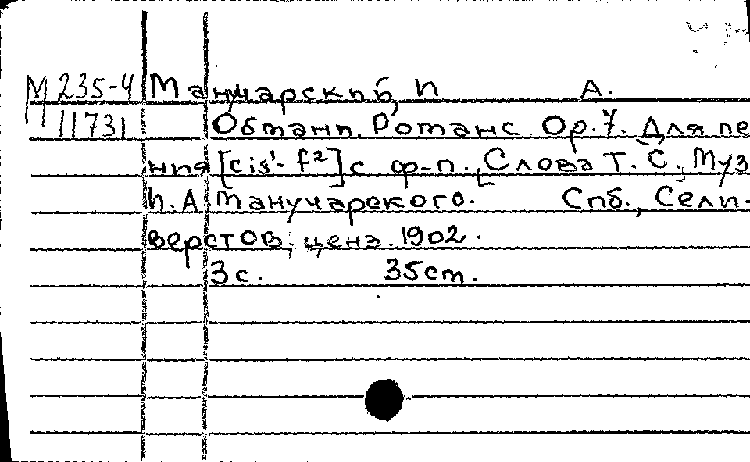 М 235-4 Манучарский, П А.
11731 Обманы. Романс Op. 7. Для пе
ния [cis¹- f²] с ф-п., [Слова Т. С., Муз
П. А Манучарского. Спб., Сели-
верстов, ценз. 1902.
3 с. 35 cm.